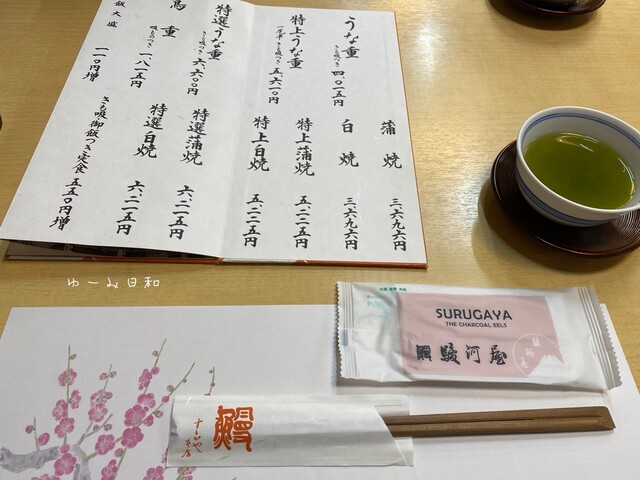 うな重
きも吸つき 四、〇一五円
特上うな重
一尾半 きも吸つき 五、六一〇円
特選うな重
きも吸つき 六、六〇〇円
鳥重
吸ものつき 一、八一五円
飯大盛
一一〇円増
蒲焼 三、六九六円
白焼 三、六九六円
特上蒲焼 五、二二五円
特上白焼 五、二二五円
特選蒲焼 六、二一五円
特選白焼 六、二一五円
きも吸御飯つき定食 五五〇円増
ゆーみ日和
SURUGAYA
THE CHARCOAL EELS
駿河屋
鰻
するがや
本店